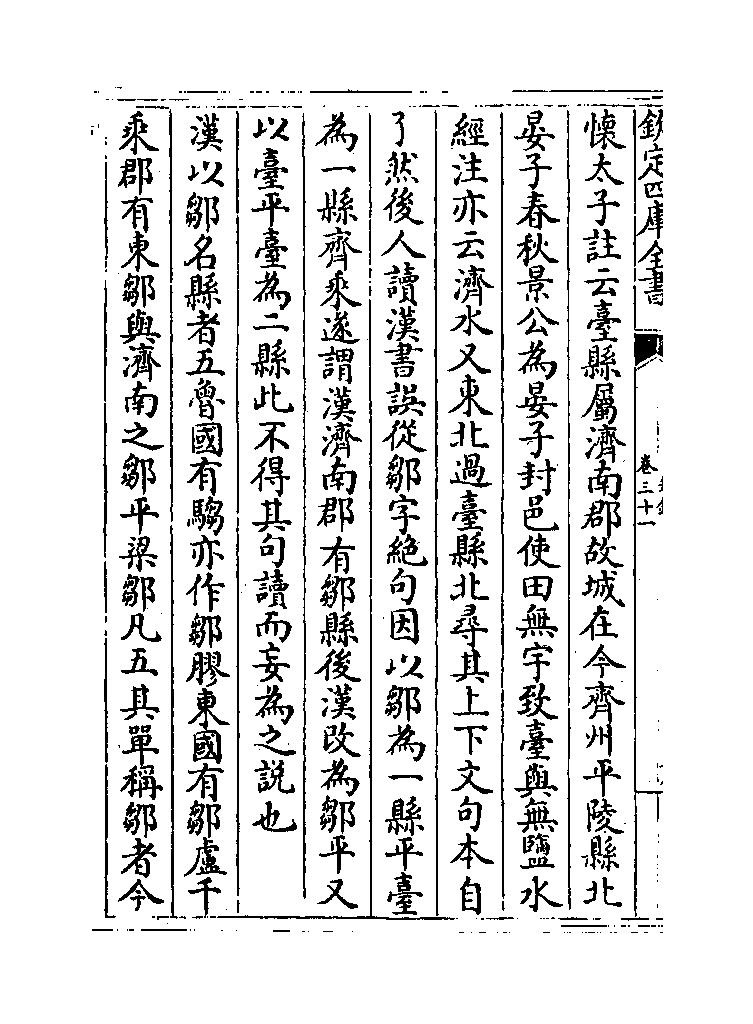 欽定四庫全書
卷三十一
懐太子註云臺縣屬濟南郡故城在今齊州平陵縣北
晏子春秋景公為晏子封邑使田無宇致臺與無鹽水
經注亦云濟水又東北過臺縣北尋其上下文句本自
了然後人讀漢書誤從鄒字絶句因以鄒為一縣平臺
為一縣齊乘遂謂漢濟南郡有鄒縣後漢改為鄒平又
以臺平臺為二縣此不得其句讀而妄為之説也
漢以鄒名縣者五魯國有騶亦作鄒膠東國有鄒盧千
乘郡有東鄒與濟南之鄒平梁鄒凡五其單稱鄒者今